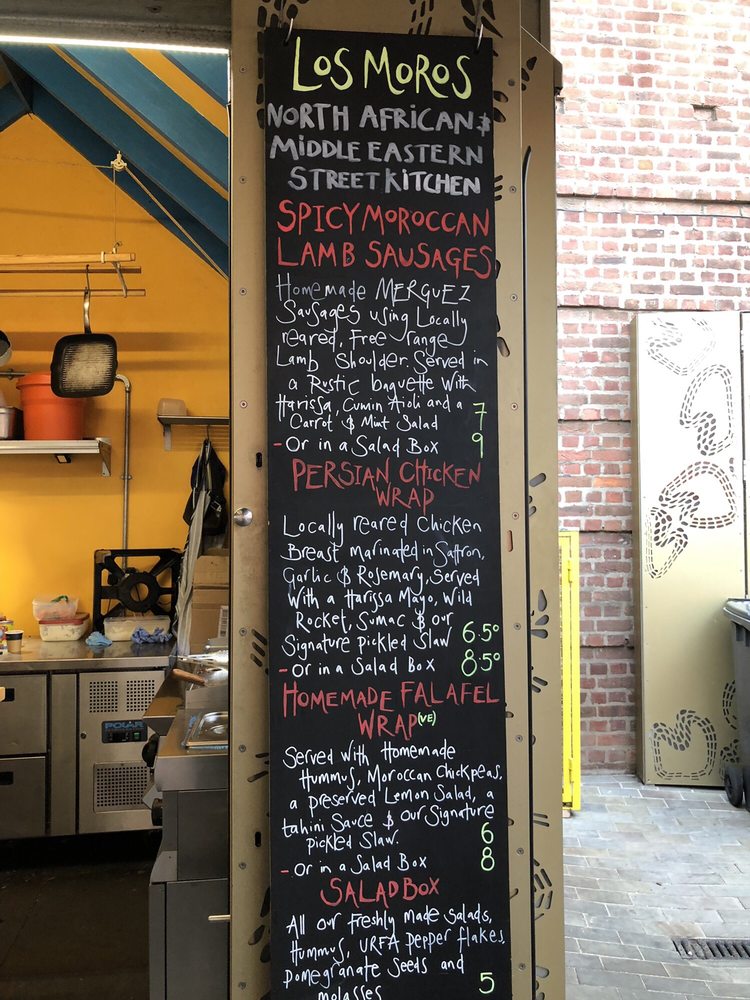 LOS MOROS
NORTH AFRICAN &
MIDDLE EASTERN
STREET KITCHEN
SPICY MOROCCAN
LAMB SAUSAGES
Homemade MERGUEZ
Sausages using Locally
reared, Free range
Lamb Shoulder. Served in
a Rustic baguette with
Harissa, Cumin Aioli and a
Carrot & Mint Salad 7
- Or in a Salad Box 9
PERSIAN CHICKEN
WRAP
Locally reared Chicken
Breast marinated in Saffron,
Garlic & Rosemary, Served
With a Harissa Mayo, Wild
Rocket, Sumac & our
Signature pickled Slaw 6.50
- Or in a Salad Box 8.50
HOMEMADE FALAFEL
WRAP (VE)
Served with Homemade
Hummus, Moroccan Chickpeas,
a preserved Lemon Salad, a
tahini Sauce & our Signature
pickled Slaw. 6
- Or in a Salad Box 8
SALAD BOX
All our freshly made Salads,
Hummus, URFA pepper flakes,
pomegranate Seeds and
molasses 5
POLAR